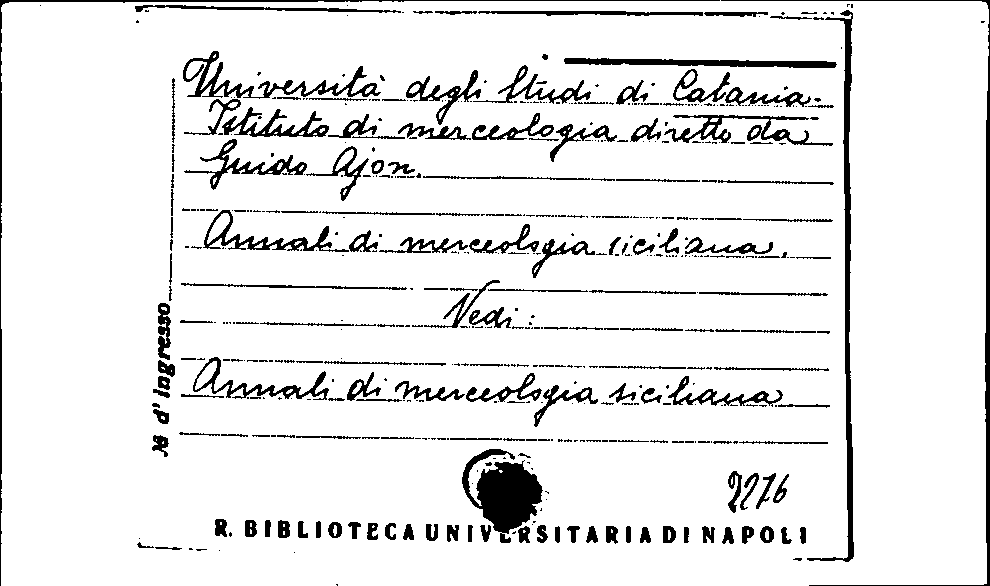 Università degli Studi di Catania.
Istituto di merceologia diretto da
Guido Ajon.
Annali di merceologia siciliana.
Vedi:
Annali di merceologia siciliana
№ d'ingresso
2276
R. BIBLIOTECA UNIVERSITARIA DI NAPOLI